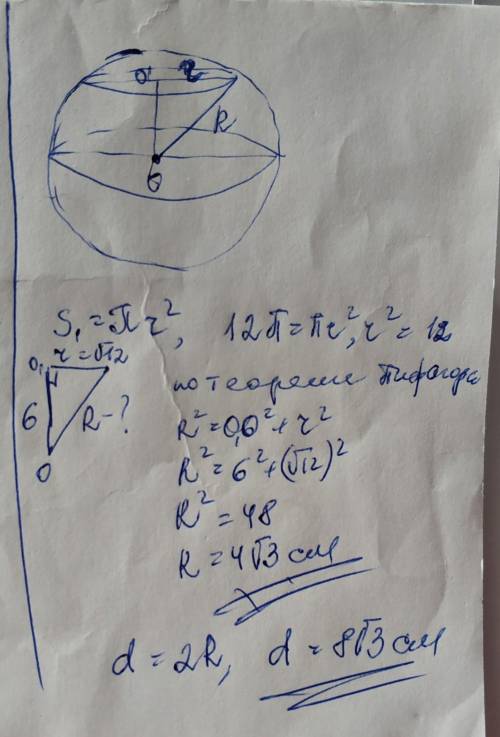 O' r
R
O
S₁ = πr², 12π = πr², r² = 12
O₁ r = √12
по теореме Пифагора
6 R - ?
R² = O₁O² + r²
O
R² = 6² + (√12)²
R² = 48
R = 4√3 см
d = 2R, d = 8√3 см